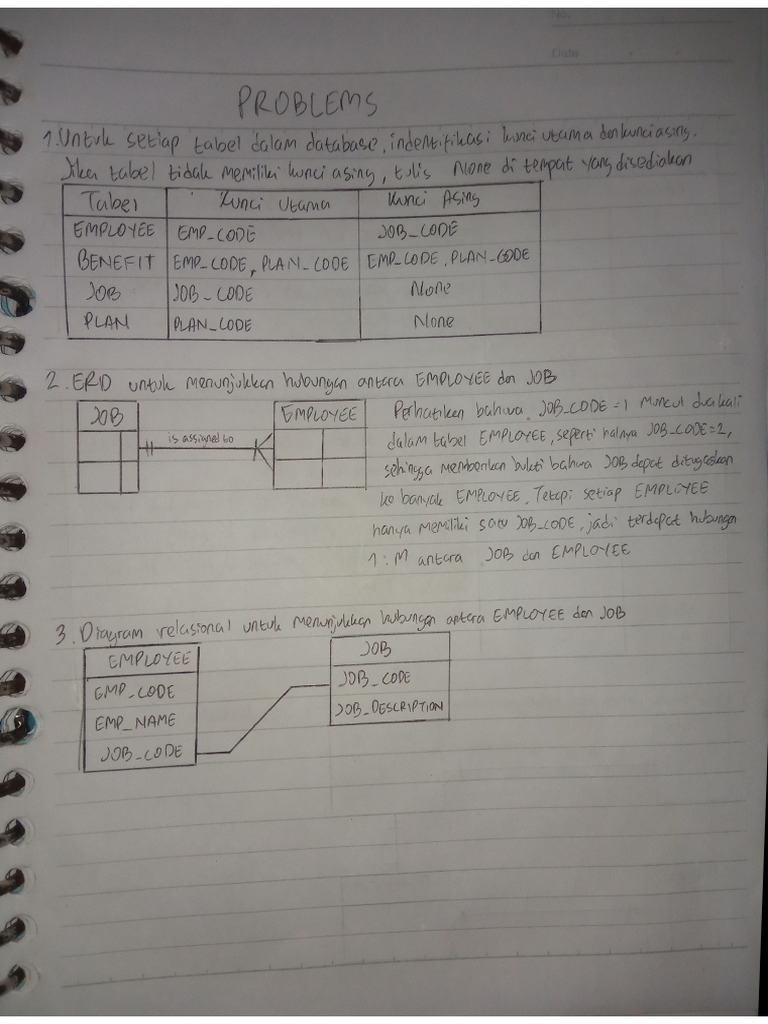 No.
Date
PROBLEMS
1. Untuk setiap tabel dalam database, indentifikasi kunci utama dan kunci asing.
Jika tabel tidak memiliki kunci asing, tulis None di tempat yang disediakan
Tabel Kunci Utama Kunci Asing
EMPLOYEE EMP_CODE JOB_CODE
BENEFIT EMP_CODE, PLAN_CODE EMP_CODE, PLAN_CODE
JOB JOB_CODE None
PLAN PLAN_CODE None
2. ERD untuk menunjukkan hubungan antara EMPLOYEE dan JOB
JOB
is assigned to
EMPLOYEE
Perhatikan bahwa JOB_CODE = 1 muncul dua kali
dalam tabel EMPLOYEE, seperti halnya JOB_CODE = 2,
sehingga memberikan bukti bahwa JOB dapat ditugaskan
ke banyak EMPLOYEE. Tetapi setiap EMPLOYEE
hanya memiliki satu JOB_CODE, jadi terdapat hubungan
1 : M antara JOB dan EMPLOYEE
3. Diagram relasional untuk menunjukkan hubungan antara EMPLOYEE dan JOB
EMPLOYEE
EMP_CODE
EMP_NAME
JOB_CODE
JOB
JOB_CODE
JOB_DESCRIPTION